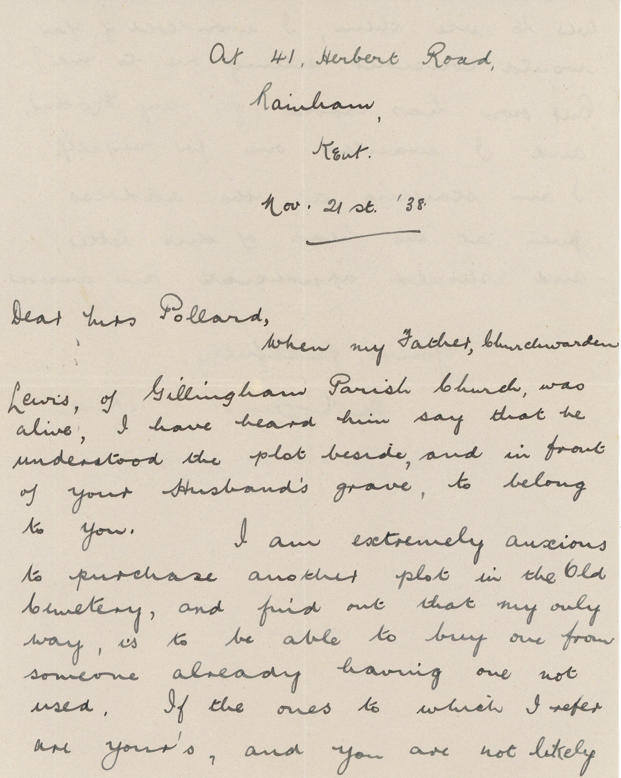 At 41, Herbert Road,
Rainham,
Kent.
Nov. 21st. '38.
Dear Mrs Pollard,
When my Father, Churchwarden
Lewis, of Gillingham Parish Church, was
alive, I have heard him say that he
understood the plot beside, and in front
of your Husband's grave, to belong
to you. I am extremely anxious
to purchase another plot in the Old
Cemetery, and find out that my only
way, is to be able to buy one from
someone already having one not
used. If the ones to which I refer
are your's, and you are not likely